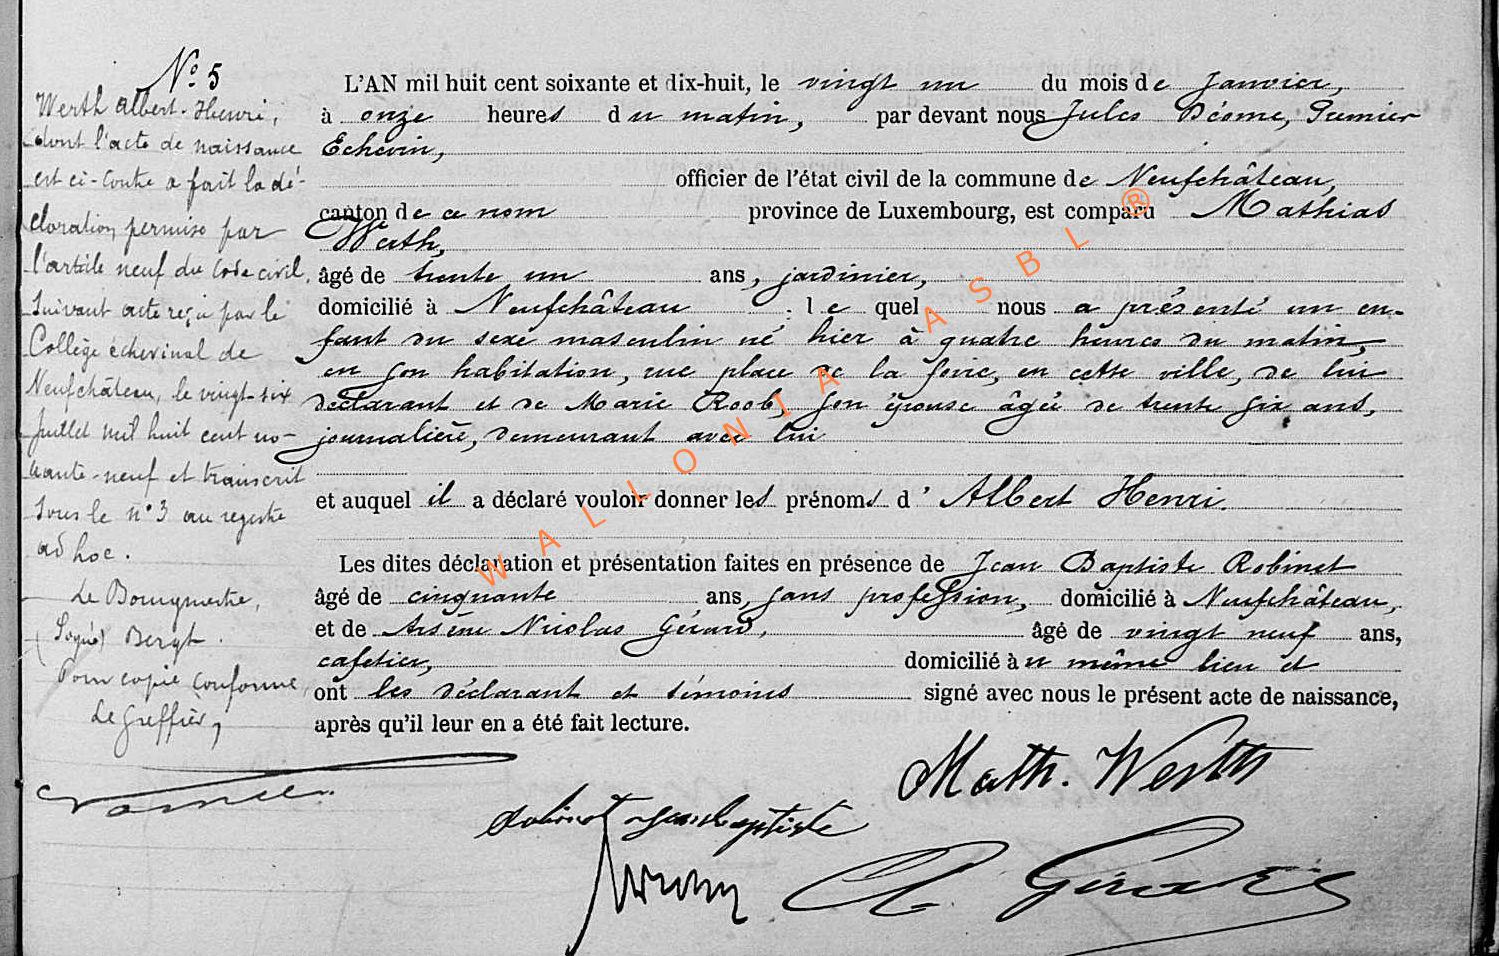 N° 5
Werth Albert-Henri,
dont l'acte de naissance
est ci-contre a fait la dé-
claration permise par
l'article neuf du Code civil,
suivant acte reçu par le
Collège échevinal de
Neufchâteau, le vingt-six
juillet mil huit cent no-
nante-neuf et transcrit
sous le n° 3 au registre
ad hoc.
Le Bourgmestre,
(Signé) Bergh.
Pour copie conforme,
Le Greffier,
L'AN mil huit cent soixante et dix-huit, le vingt un du mois de Janvier,
à onze heures du matin, par devant nous Jules Déome, Premier
Echevin,
officier de l'état civil de la commune de Neufchâteau,
canton de ce nom province de Luxembourg, est comparu Mathias
Werth,
âgé de trente un ans, jardinier,
domicilié à Neufchâteau ; lequel nous a présenté un en-
fant du sexe masculin né hier à quatre heures du matin,
en son habitation, rue place de la foire, en cette ville, de lui
déclarant et de Marie Roob, son épouse âgée de trente six ans,
journalière, demeurant avec lui
et auquel il a déclaré vouloir donner les prénoms d' Albert Henri.
Les dites déclaration et présentation faites en présence de Jean Baptiste Robinet
âgé de cinquante ans, sans profession, domicilié à Neufchâteau,
et de Arsène Nicolas Gérard, âgé de vingt neuf ans,
cafetier, domicilié au même lieu et
ont les déclarant et témoins signé avec nous le présent acte de naissance,
après qu'il leur en a été fait lecture.
Math. Werth
Robinet Jean Baptiste
A Gérard
WALLONIA ASBL ®